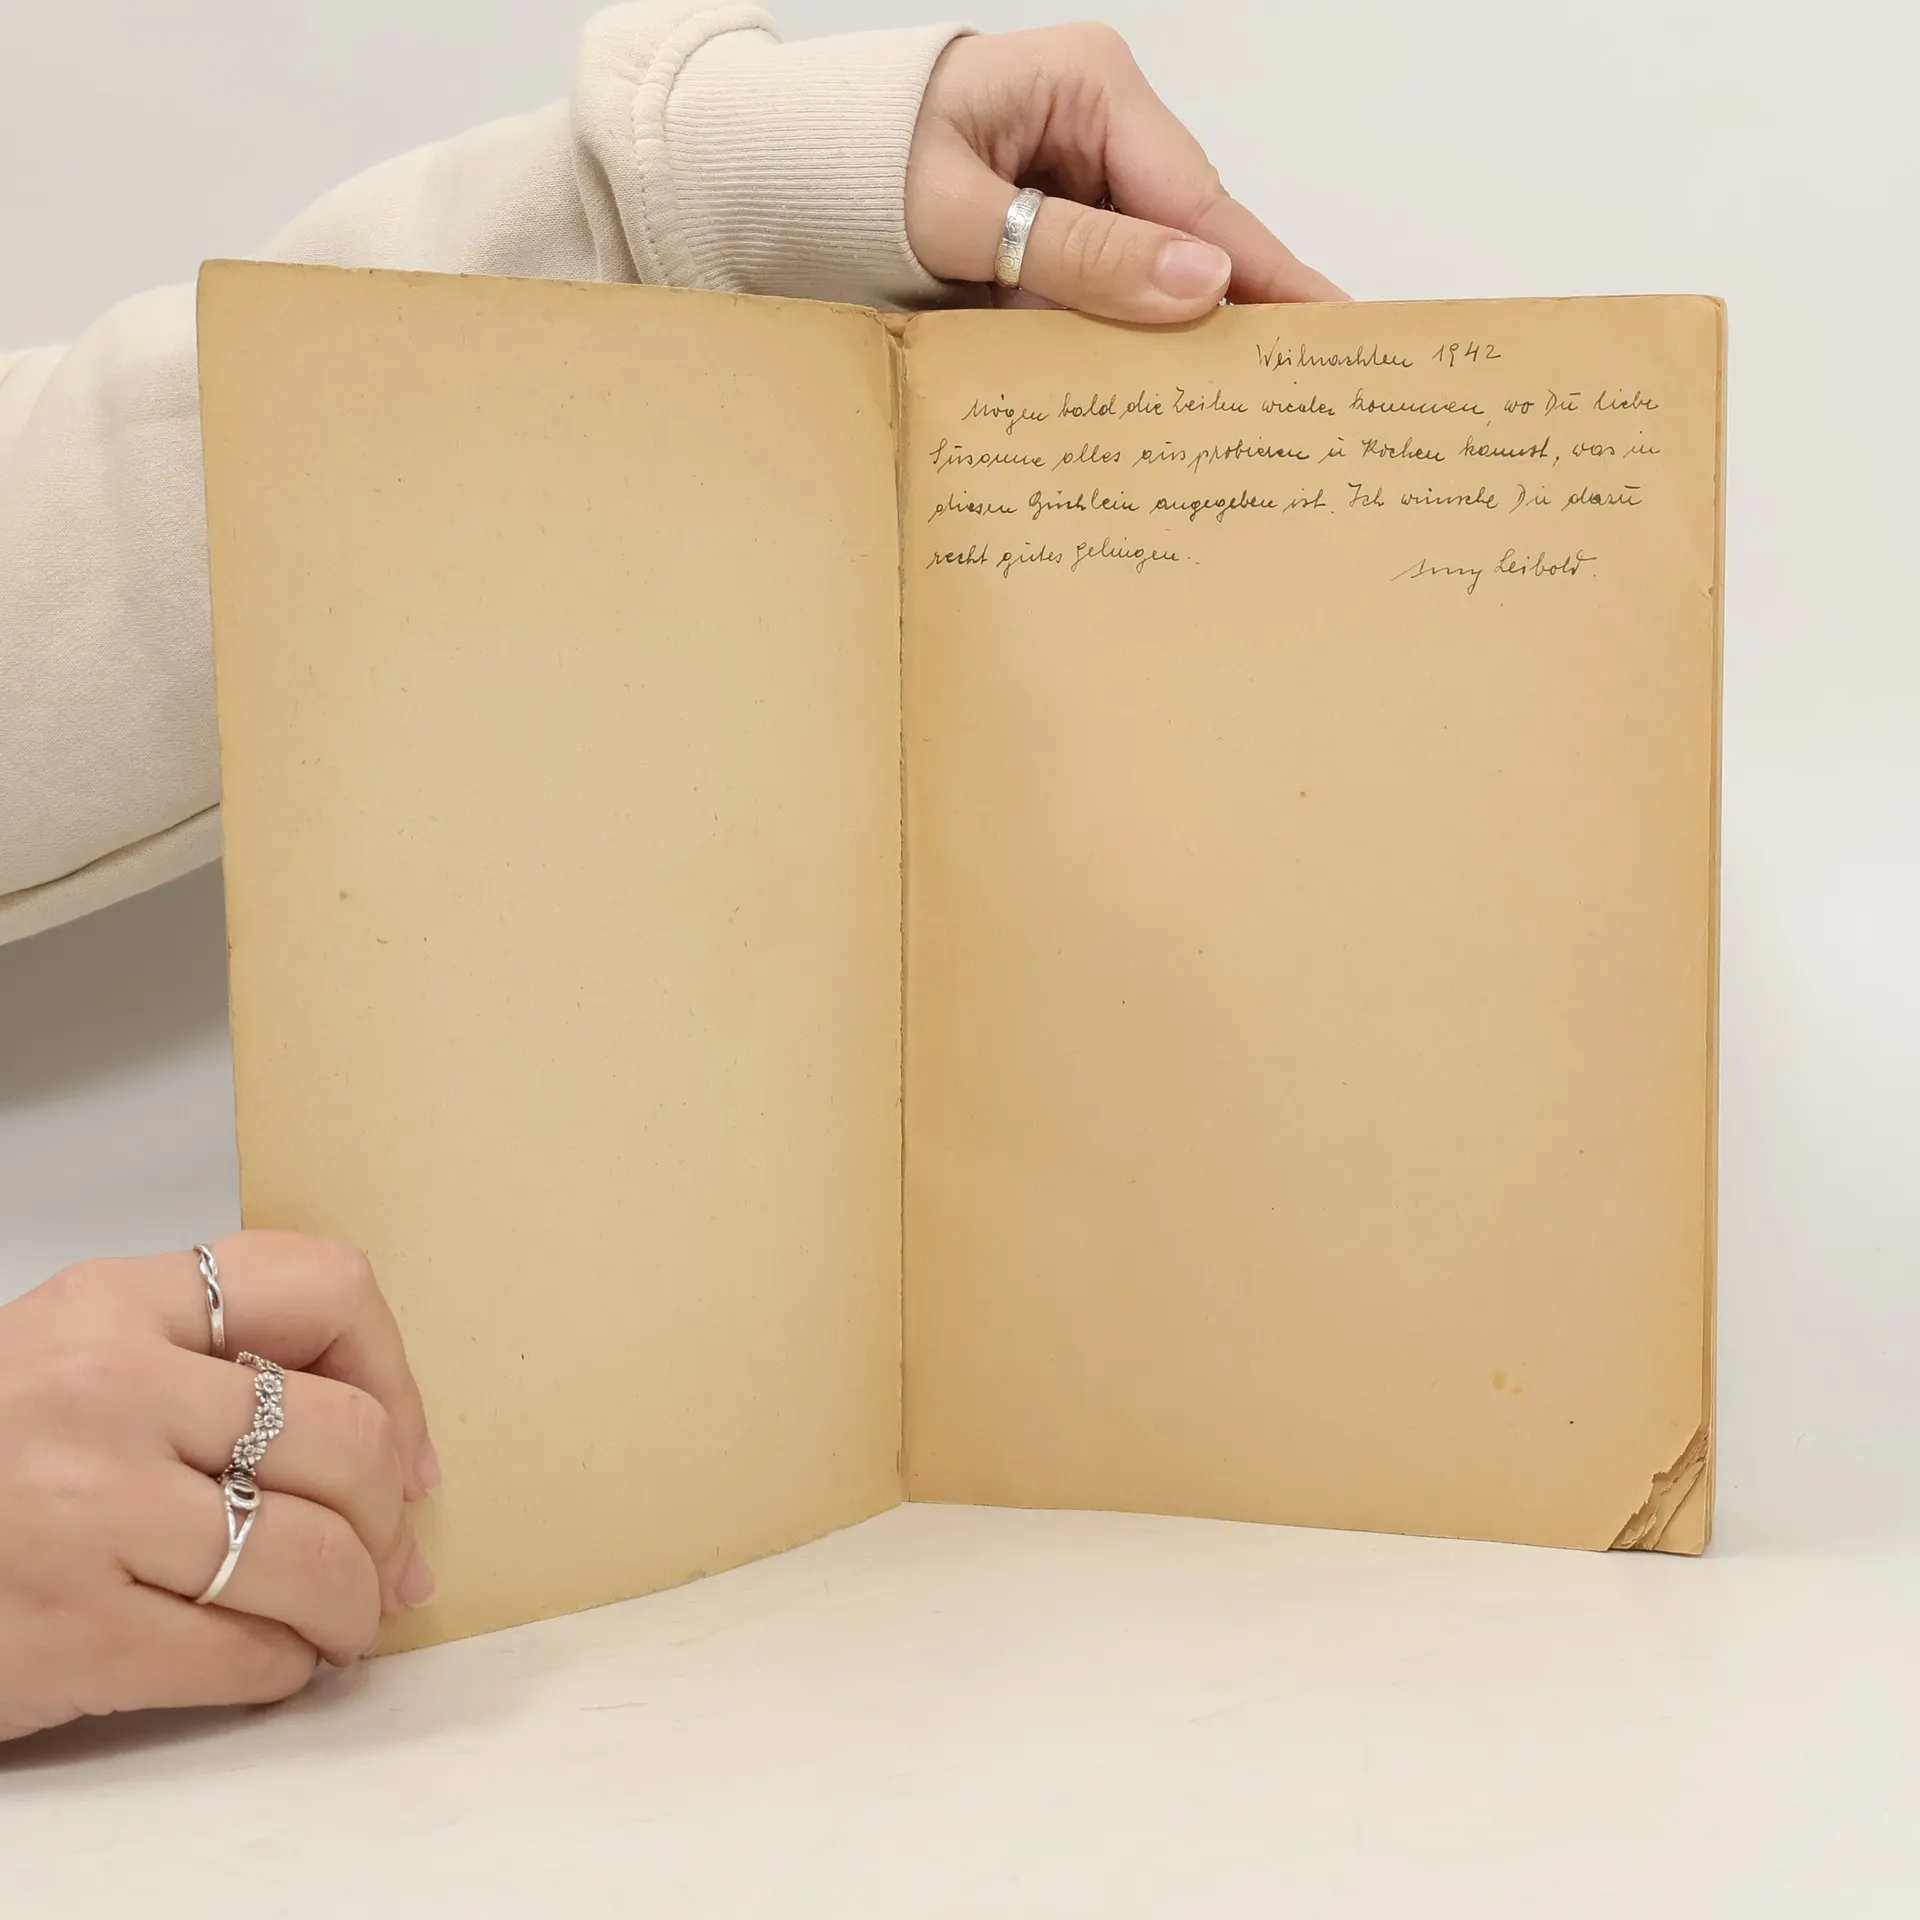 Weihnachten 1942
Mögen bald die Zeiten wieder kommen, wo Du liebe
Susanne alles ausprobieren u kochen kannst, was in
diesen Büchlein angegeben ist. Ich wünsche Dir dazu
recht gutes Gelingen.
Leibold.